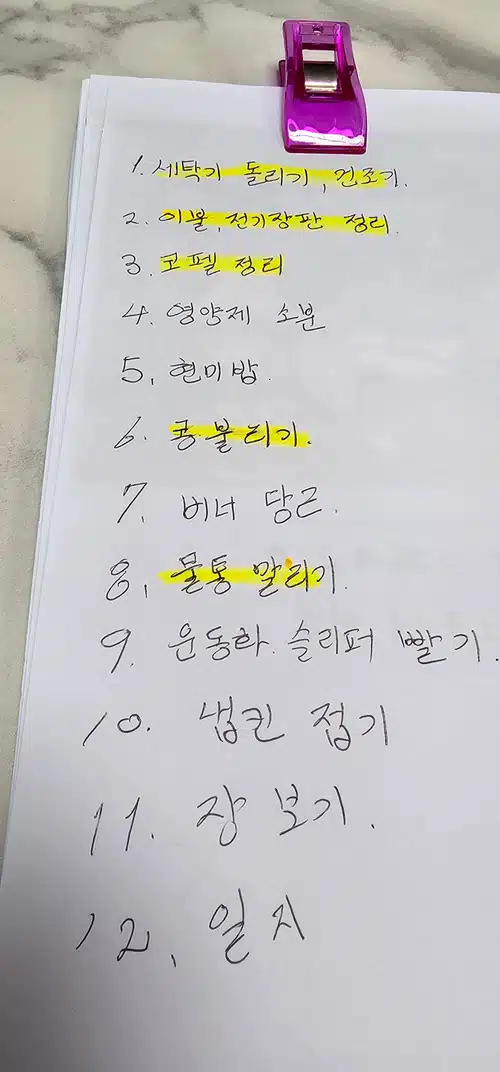 1. 세탁기 돌리기, 건조기.
2. 이불, 전기장판 정리.
3. 코펠 정리
4. 영양제 소분
5. 현미밥.
6. 콩 불리기.
7. 버너 당근.
8. 물통 말리기.
9. 운동화. 슬리퍼 빨기.
10. 냅킨 접기
11. 장 보기.
12. 일지